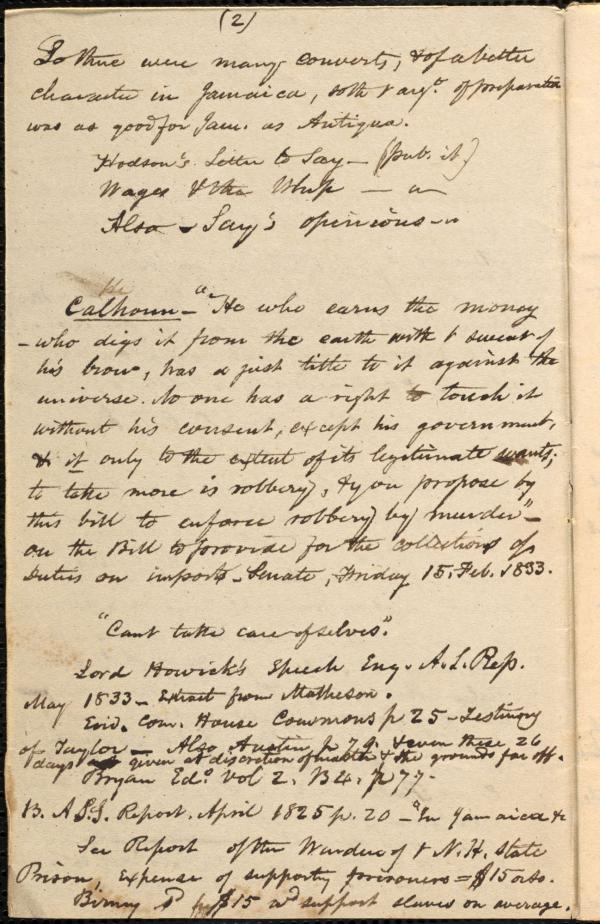 (2)
So there were many converts, & of a better
character in Jamaica, both & argt. of preparation
was as good for Jam. as Antigua.
Hodson's Letter to Say - (pub. it)
Wages & the Whip — "
Also - Say's opinions - "
He
Calhoun - "He who earns the money
- who digs it from the earth with t sweat of
his brow, has a just title to it against the
universe. No one has a right to touch it
without his consent, except his government,
& it only to the extent of its legitimate wants;
to take more is robbery, & you propose by
this bill to enforce robbery by murder" -
on the Bill to provide for the collections of
Duties on imports - Senate, Friday 15, Feb. 1833.
"Cant take care of selves".
Lord Howick's Speech Eng. A. S. Rep.
May 1833 - Extract from Matheson.
Evid. Com. House Commons p 25 - Testimony
of Taylor - Also Austin p 79. & even these 26
days given at discretion of master & the grounds far off.
Bryan Edd. Vol 2. B 4. p 77 -
B. A. S. S. Report. April 1825 p. 20 - "In Jamaica &c
See Report of the Warden of t N. H. State
Prison, Expense of supporting prisoners = $15 a
Birney sd $15 wd support slaves on average.